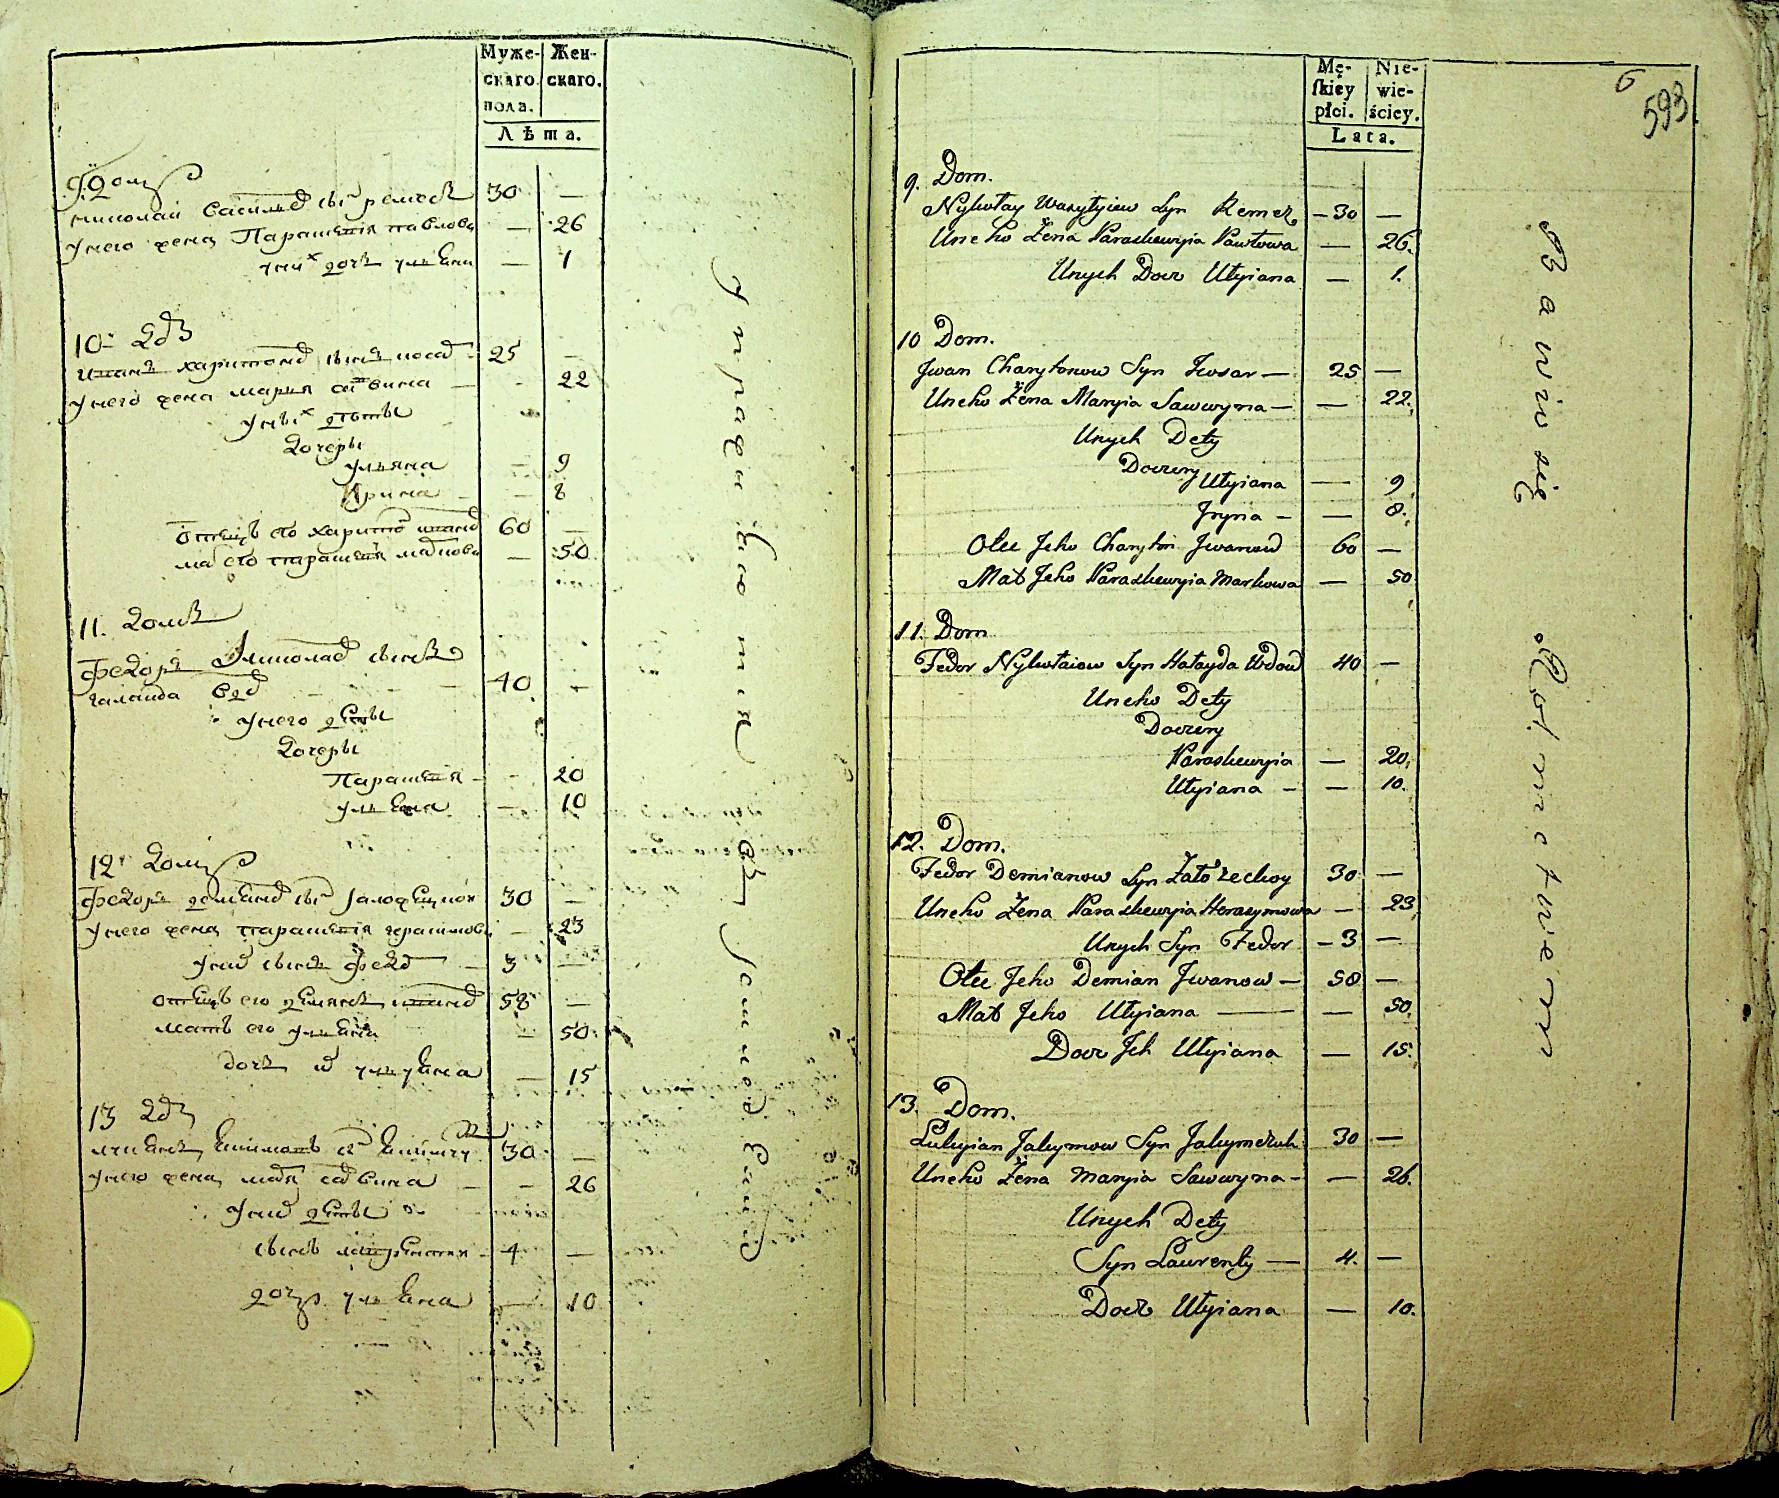 Муже-
скаго
пола.
Жен-
скаго.
Лѣта.
9. Домъ
Николай Васильев сынъ Ремезъ 30 —
У него жена Парашкевія Павлова — 26
У них дочь Ульяна — 1
10 Домъ
Иванъ Харитонов сынъ 25 —
У него жена Марія Саввина — 22
У них дѣти
Дочеры
Ульяна — 9
Ирина — 8
Отецъ его Харитон Иванов 60 —
мать его Парашкевія — 50
11. Домъ
Федоръ Николаев сынъ
Галайда вдов 40 —
У него дѣти
Дочеры
Парашкевія — 20
Ульяна — 10
12 Домъ
Федоръ Демянов сынъ 30 —
У него жена Парашкевія Герасимова — 23
У них сынъ Федор 3 —
Отецъ его Демянъ Иванов 58 —
мать его Ульяна — 50
дочь их Ульяна — 15
13 Домъ
30 —
У него жена Марія Саввина — 26
У них дѣти
сынъ Лаврентій 4 —
дочь Ульяна — 10
Упражняются
в земледеліи
Mę-
skiey
płci.
Nie-
wie-
ściey.
Lata.
6
593
9. Dom.
Nykołay Wasylyiew Syn Remez — 30 —
Uneho Żena Paraskewyia Pawłowa — 26.
Unych Docz Ulyiana — 1.
10 Dom.
Jwan Charytonow Syn Kosar — 25 —
Uneho Żena Maryia Sawwyna — — 22.
Unych Dety
Doczery
Ulyiana — 9
Jryna — — 8.
Otec Jeho Charyton Jwanow 60 —
Mat Jeho Paraskewyia Markowa — 50
11. Dom
Fedor Nykołaiow Syn Hałayda Wdow 40 —
Uneho Dety
Doczery
Paraskewyia — 20.
Ulyiana — — 10.
12. Dom.
Fedor Demianow Syn 30 —
Uneho Żena Paraskewyia Herasymowa — 23
Unych Syn Fedor — 3 —
Otec Jeho Demian Jwanow — 58 —
Mat Jeho Ulyiana — — 50.
Docz Jch Ulyiana — 15.
13. Dom.
Łukyian Jakymow Syn Jakymczuk 30 —
Uneho Żena Maryia Sawwyna — — 26.
Unych Dety
Syn Laurenty — 4. —
Docz Ulyiana — 10.
Bawią się
Rolnictwem